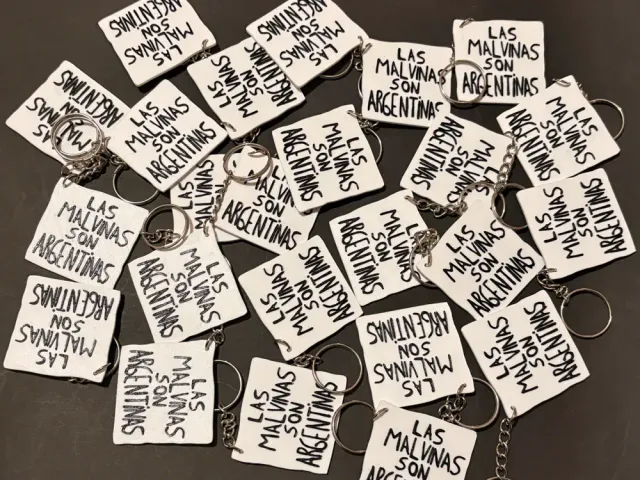 LAS
MALVINAS
SON
ARGENTINAS
LAS
MALVINAS
SON
ARGENTINAS
LAS
MALVINAS
SON
ARGENTINAS
LAS
MALVINAS
SON
ARGENTINAS
LAS
MALVINAS
SON
ARGENTINAS
LAS
MALVINAS
SON
ARGENTINAS
LAS
MALVINAS
SON
ARGENTINAS
LAS
MALVINAS
SON
ARGENTINAS
LAS
MALVINAS
SON
ARGENTINAS
LAS
MALVINAS
SON
ARGENTINAS
LAS
MALVINAS
MALVINAS
SON
ARGENTINAS
LAS
MALVINAS
SON
ARGENTINAS
LAS
MALVINAS
SON
ARGENTINAS
LAS
MALVINAS
SON
ARGENTINAS
LAS
MALVINAS
SON
ARGENTINAS
LAS
MALVINAS
SON
ARGENTINAS
LAS
MALVINAS
SON
ARGENTINAS
LAS
MALVINAS
SON
ARGENTINAS
LAS
MALVINAS
SON
ARGENTINAS
LAS
MALVINAS
SON
ARGENTINAS
LAS
MALVINAS
SON
ARGENTINAS
LAS
MALVINAS
SON
ARGENTINAS
LAS
MALVINAS
SON